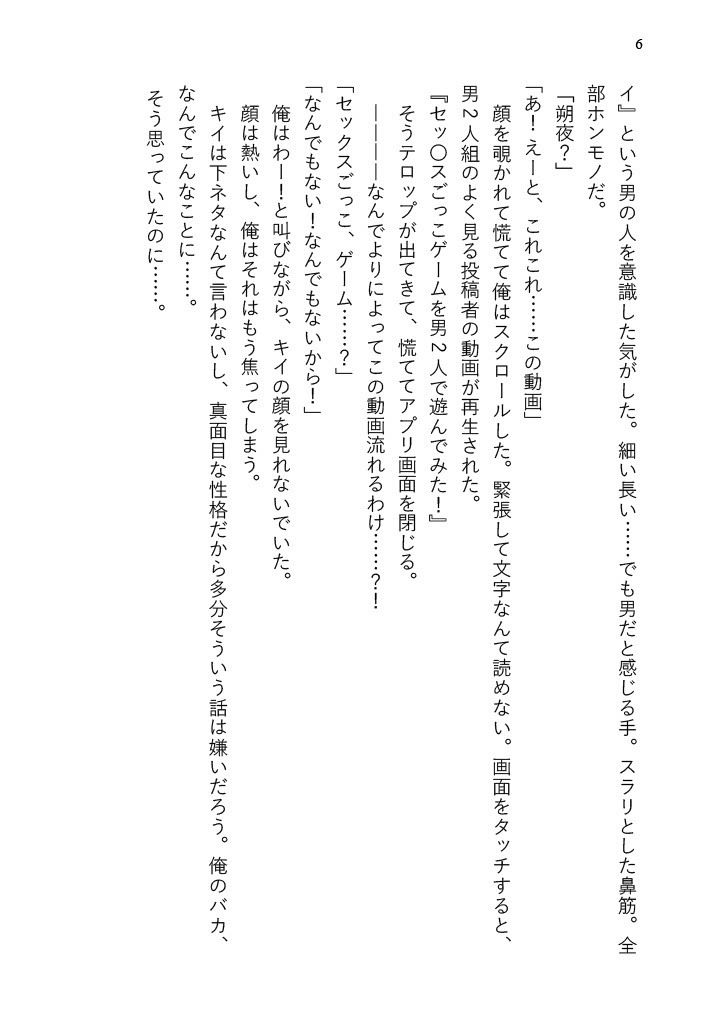 6
イ』という男の人を意識した気がした。細い長い……でも男だと感じる手。スラリとした鼻筋。全
部ホンモノだ。
「朔夜？」
「あ！えーと、これこれ……この動画」
顔を覗かれて慌てて俺はスクロールした。緊張して文字なんて読めない。画面をタッチすると、
男２人組のよく見る投稿者の動画が再生された。
『セッ〇スごっこゲームを男２人で遊んでみた！』
そうテロップが出てきて、慌ててアプリ画面を閉じる。
――――なんでよりによってこの動画流れるわけ……？！
「セックスごっこ、ゲーム……？」
「なんでもない！なんでもないから！」
俺はわー！と叫びながら、キイの顔を見れないでいた。
顔は熱いし、俺はそれはもう焦ってしまう。
キイは下ネタなんて言わないし、真面目な性格だから多分そういう話は嫌いだろう。俺のバカ、
なんでこんなことに……。
そう思っていたのに……。